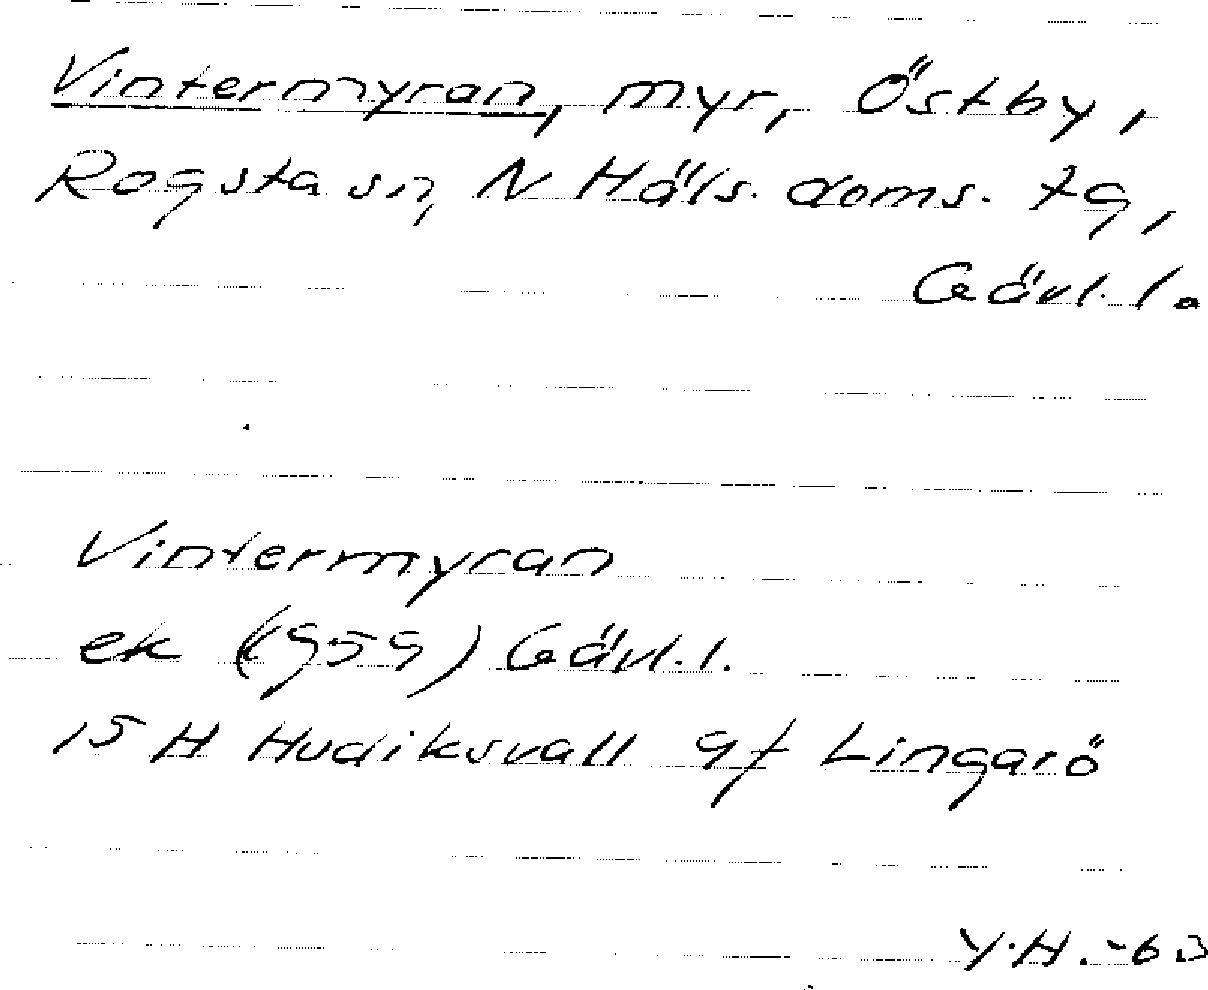 Vintermyran, myr, Östby,
Rogsta sn, N Häls. doms. tg,
Gävl. l.
Vintermyran
ek (1959) Gävl. l.
15 H Hudiksvall 9f Lingarö
Y.H. -63